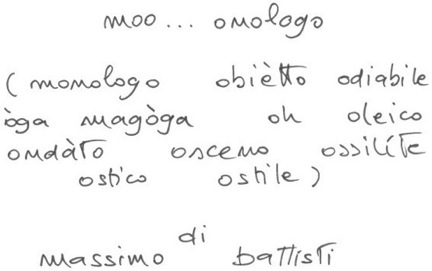 moo... omologo
(monologo obiètto odiabile
òga magòga oh oleico
ondàto osceno ossilíte
ostico ostile)
di
massimo battisti